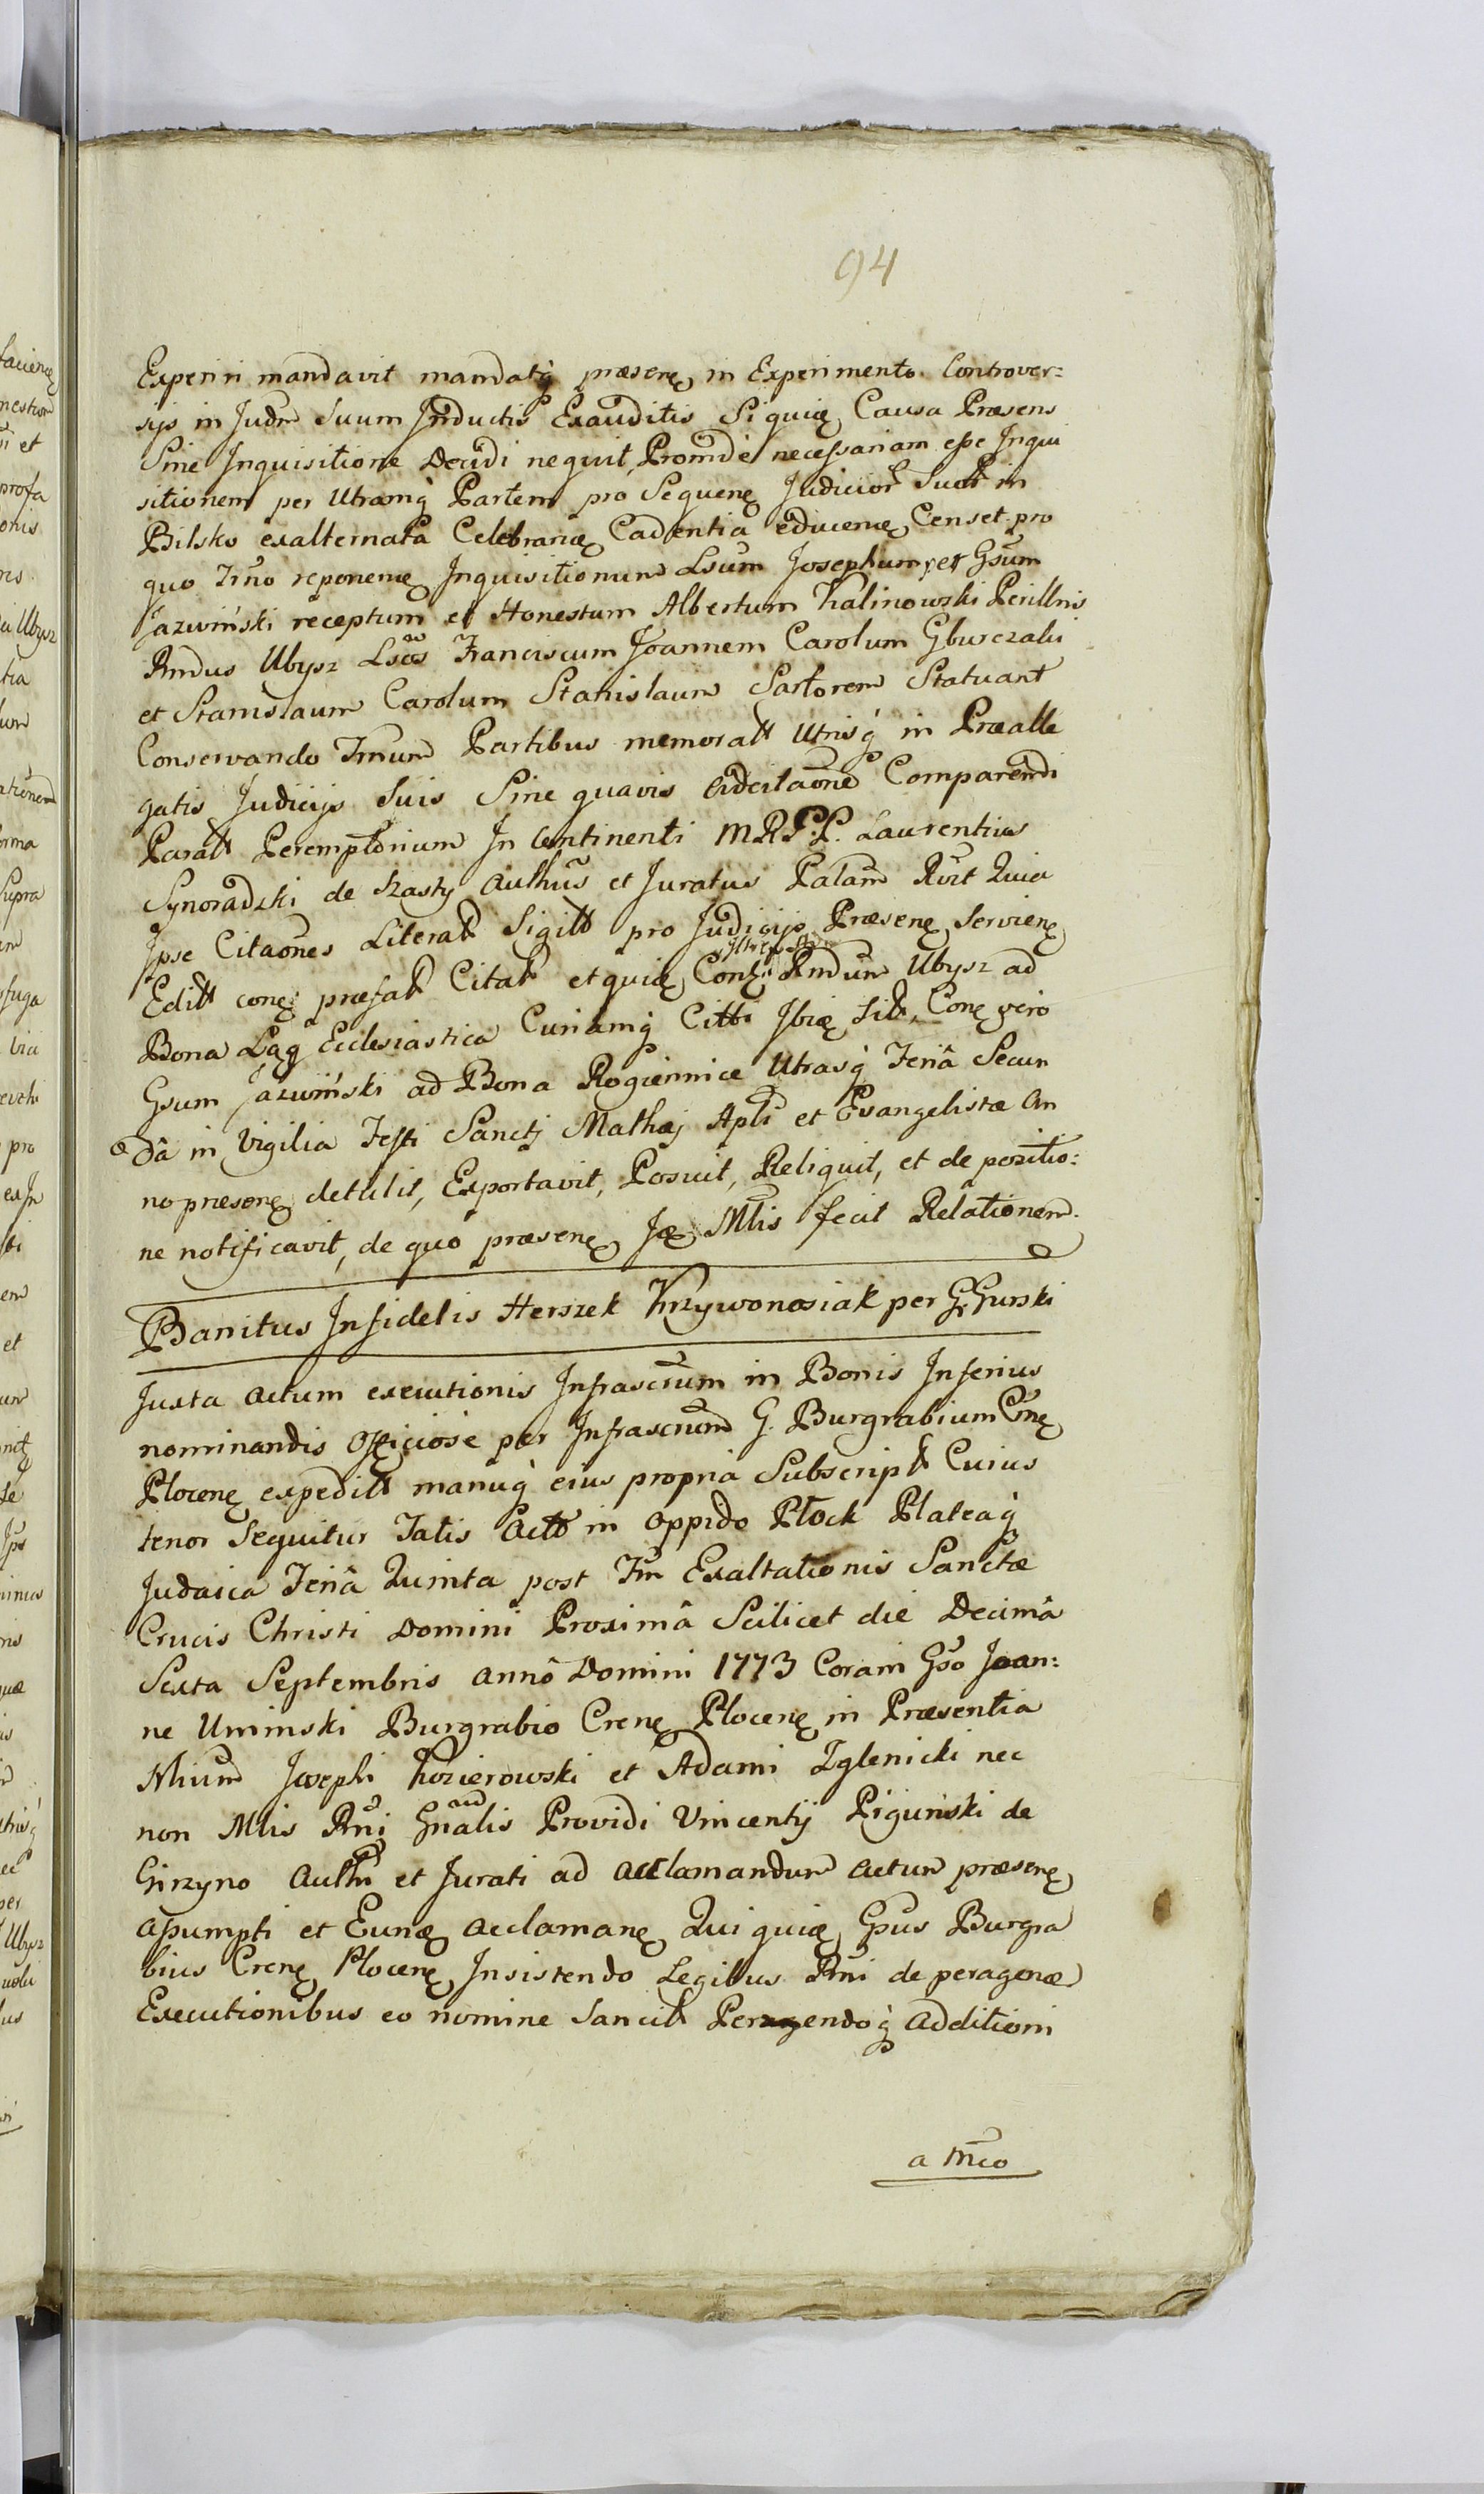 94
Experiri mandavit mandatq́ præsenę in Experimento Controver:
sijs in Judm Suum Inductis Exauditis Siquię Causa Præsens
Sine Inquisitione Decidi nequit, Promde necessariam esse Inqui
sitionem per Utramq́ Partem pro Sequenę Judicior Suor in
Bilsko exalternata Celebranę Cadentia educenę Censet pro
quo Trno reponenę Inquisitionum Lsum Josephum per Gsum
Jazwiński receptum et Honestum Albertum Kalinowski Perillris
Rndus Ubysz Lscos Franciscum Joannem Carolum Gburczaki
et Stanislaum Carolum Stanislaum Sartorem Statuant
Conservando Trnum Partibus memoratt Utrisq́ in Præalle
gatis Judicijs Suis Sine quavis Adcitaone Comparendi
Paratt Peremptorium In Continenti M R P: P. Laurentius
Synoradzki de Szasty Authus et Juratus Palam Rvit Quia
Ipse Citaones Literat Sigitt pro Judicijs Præsenę Servienę
Editt conę præfat Citat et quię Conę Rndum Ubysz ad
Bona Łąg Ecclesiastica Curiamq́ Citti Ibię Sit, Conę vero
Gsum Jazwiński ad Bona Rogiennice Utrasq́ Feriâ Secun
dâ in Vigilia Festi Sancti Mathæj Apli et Evangelistæ An
no præsenę detulit, Exportavit, Posuit, Reliquit, et de positio:
ne notificavit, de quo præsenę Ję Mtis fecit Relationem.
Banitus Infidelis Herszek Krzywonosiak per G Gurski
Juxta actum executionis Infrascrum in Bonis Inferius
nominandis Officiose per Infrascrum G. Burgrabium Crnę
Plocenę expeditt manuq́ eius propria Subscript Cuius
tenor Sequitur Talis Actt in Oppido Płock Plateaq́
Judaica Feriâ Quinta post Fm Exaltationis Sanctæ
Crucis Christi Domini Proximâ Scilicet die Decimâ
Sexta Septembris annô Domini 1773 Coram Gso Joan:
ne Uminski Burgrabio Crenę Plocenę in Præsentia
Nlium Josephi Kozierowski et Adami Zglenicki nec
non Mtis Rni Gnalis Providi Vincentij Piguński de
Girzyno Authi et Jurati ad acclamandum actum præsenę
assumpti et Eunę acclamanę Qui quię Gsus Burgra
bius Crenę Plocenę Insistendo Legibus Rni de peragenę
Executionibus eo nomine Sancit Peragendoq́ Additioni
a Trnco